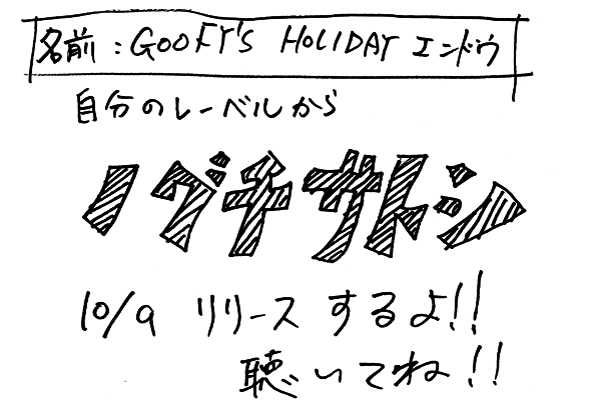 名前:GOOFY'S HOLIDAY エンドウ
自分のレーベルから
ノグチサトシ
10/9 リリースするよ!!
聴いてね!!